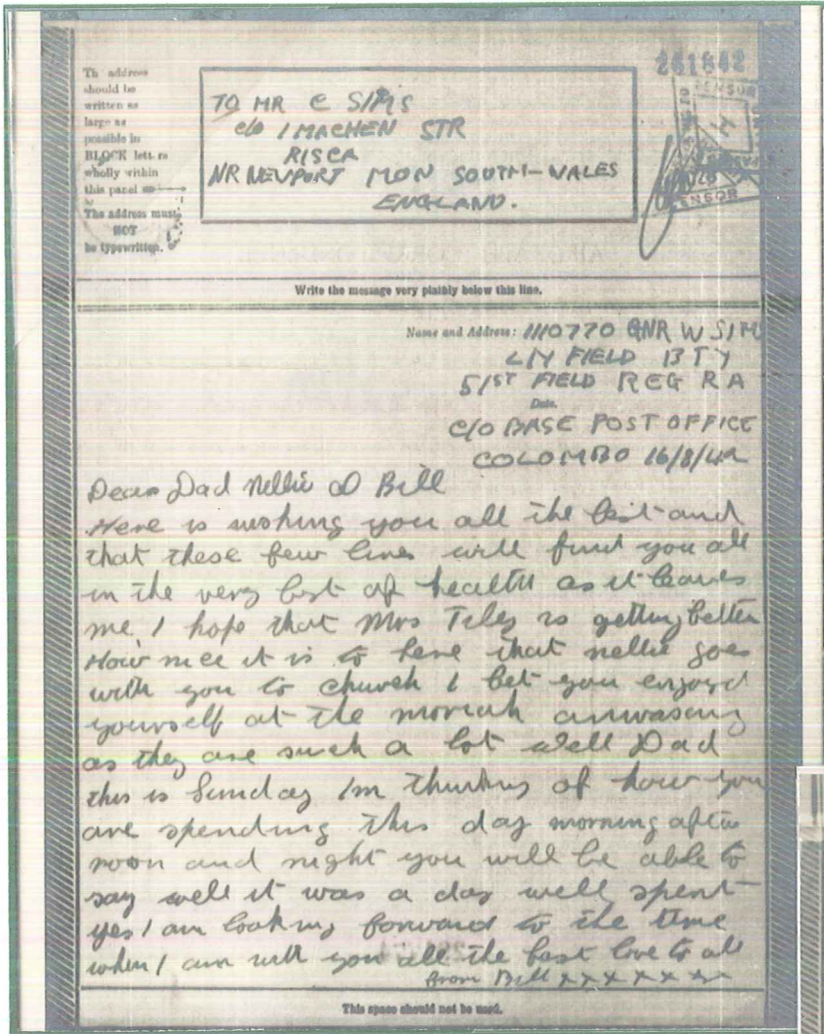 261842
Th address
should be
written as
large as
possible in
BLOCK lett rs
wholly within
this panel
The address must
NOT
be typewritten.
TO MR C SIMS
c/o 1 MACHEN STR
RISCA
NR NEWPORT MON SOUTH-WALES
ENGLAND.
CENSOR
CENSOR
Write the message very plainly below this line.
Name and Address: 1110770 GNR W SIM
L/Y FIELD BTY
51ST FIELD REG RA
Date.
C/O BASE POST OFFICE
COLOMBO 16/8/42
Dear Dad Nellie & Bill
Here is wishing you all the best and
that these few lines will find you all
in the very best of health as it leaves
me. I hope that Mrs Tiley is getting better
How nice it is to here that nellie goes
with you to church I bet you enjoyd
yourself at the moriah
as they are such a lot well Dad
this is Sunday Im thinking of how you
are spending this day morning after
noon and night you will be able to
say well it was a day well spent
yes I am looking forward to the time
when I am with you all the best love to all
from Bill x x x x x x x
This space should not be used.